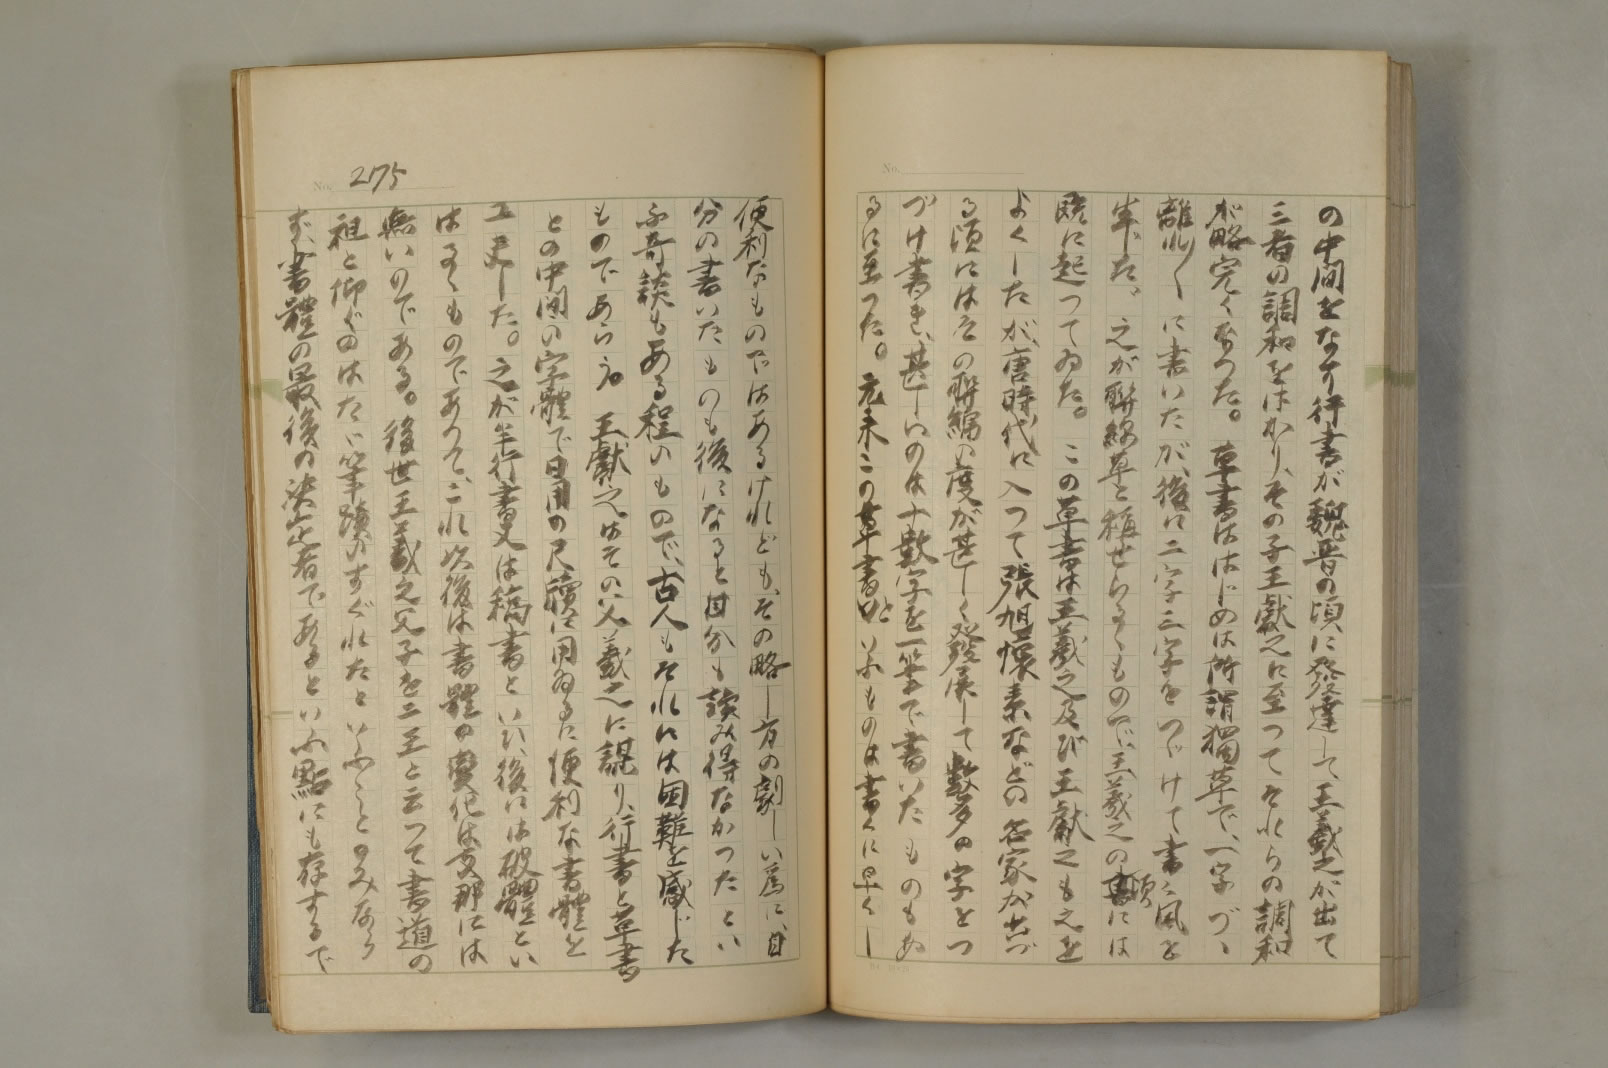 の中間をなす行書が魏晋の頃に発達して王羲之が出て
三者の調和をはかり、その子王獻之に至つてそれらの調和
が略完くなつた。草書ははじめは所謂獨草で、一字づゝ
離れ〱に書いたが、後に二字三字をつゞけて書く風を
生じた、之が聯綿草と稱せらるゝもので、王羲之の頃には
既に起つてゐた。この草書は王羲之及び王獻之も之を
よくしたが、唐時代に入つて張旭懐素などの名家が出づ
る頃にはその聯綿の度が甚しく發展して數多の字をつ
づけ書き、甚しいのは十數字を一筆で書いたものもあ
るに至つた。元来この草書といふものは書くに早くし
No. 275
便利なものではあるけれども、その略し方の劇しい為に、自
分の書いたものも後になると自分も讀み得なかつたとい
ふ奇談もある程のもので、古人もそれには困難を感じた
ものであらう。王獻之はその父羲之に謀り、行書と草書
との中間の字體で日用の尺牘に用ゐるに便利な書體を
工夫した。之が半行書又は稿書といひ、後には破體とい
はるゝものであつて、これ以後は書體の變化は支那には
無いのである。後世王羲之父子を二王と云つて書道の
祖と仰ぐのはたゞ筆蹟のすぐれたといふことのみなら
ず、書體の最後の決定者であるといふ點にも存するで
No.